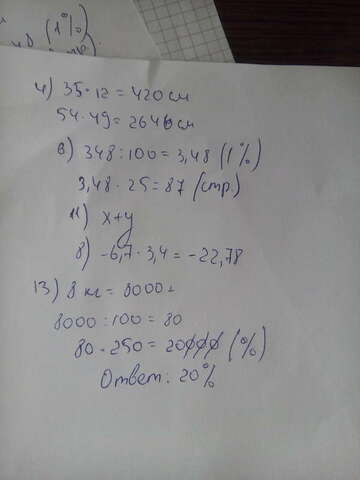 (1%)
4) 35 · 12 = 420 см
54 · 49 = 2646 см
в) 348 : 100 = 3,48 (1%)
3,48 · 25 = 87 (стр.)
х+у
8) -6,7 · 3,4 = -22,78
13) 8 кг = 8000 г
8000 : 100 = 80
80 · 250 = 20000 (%)
Ответ: 20%